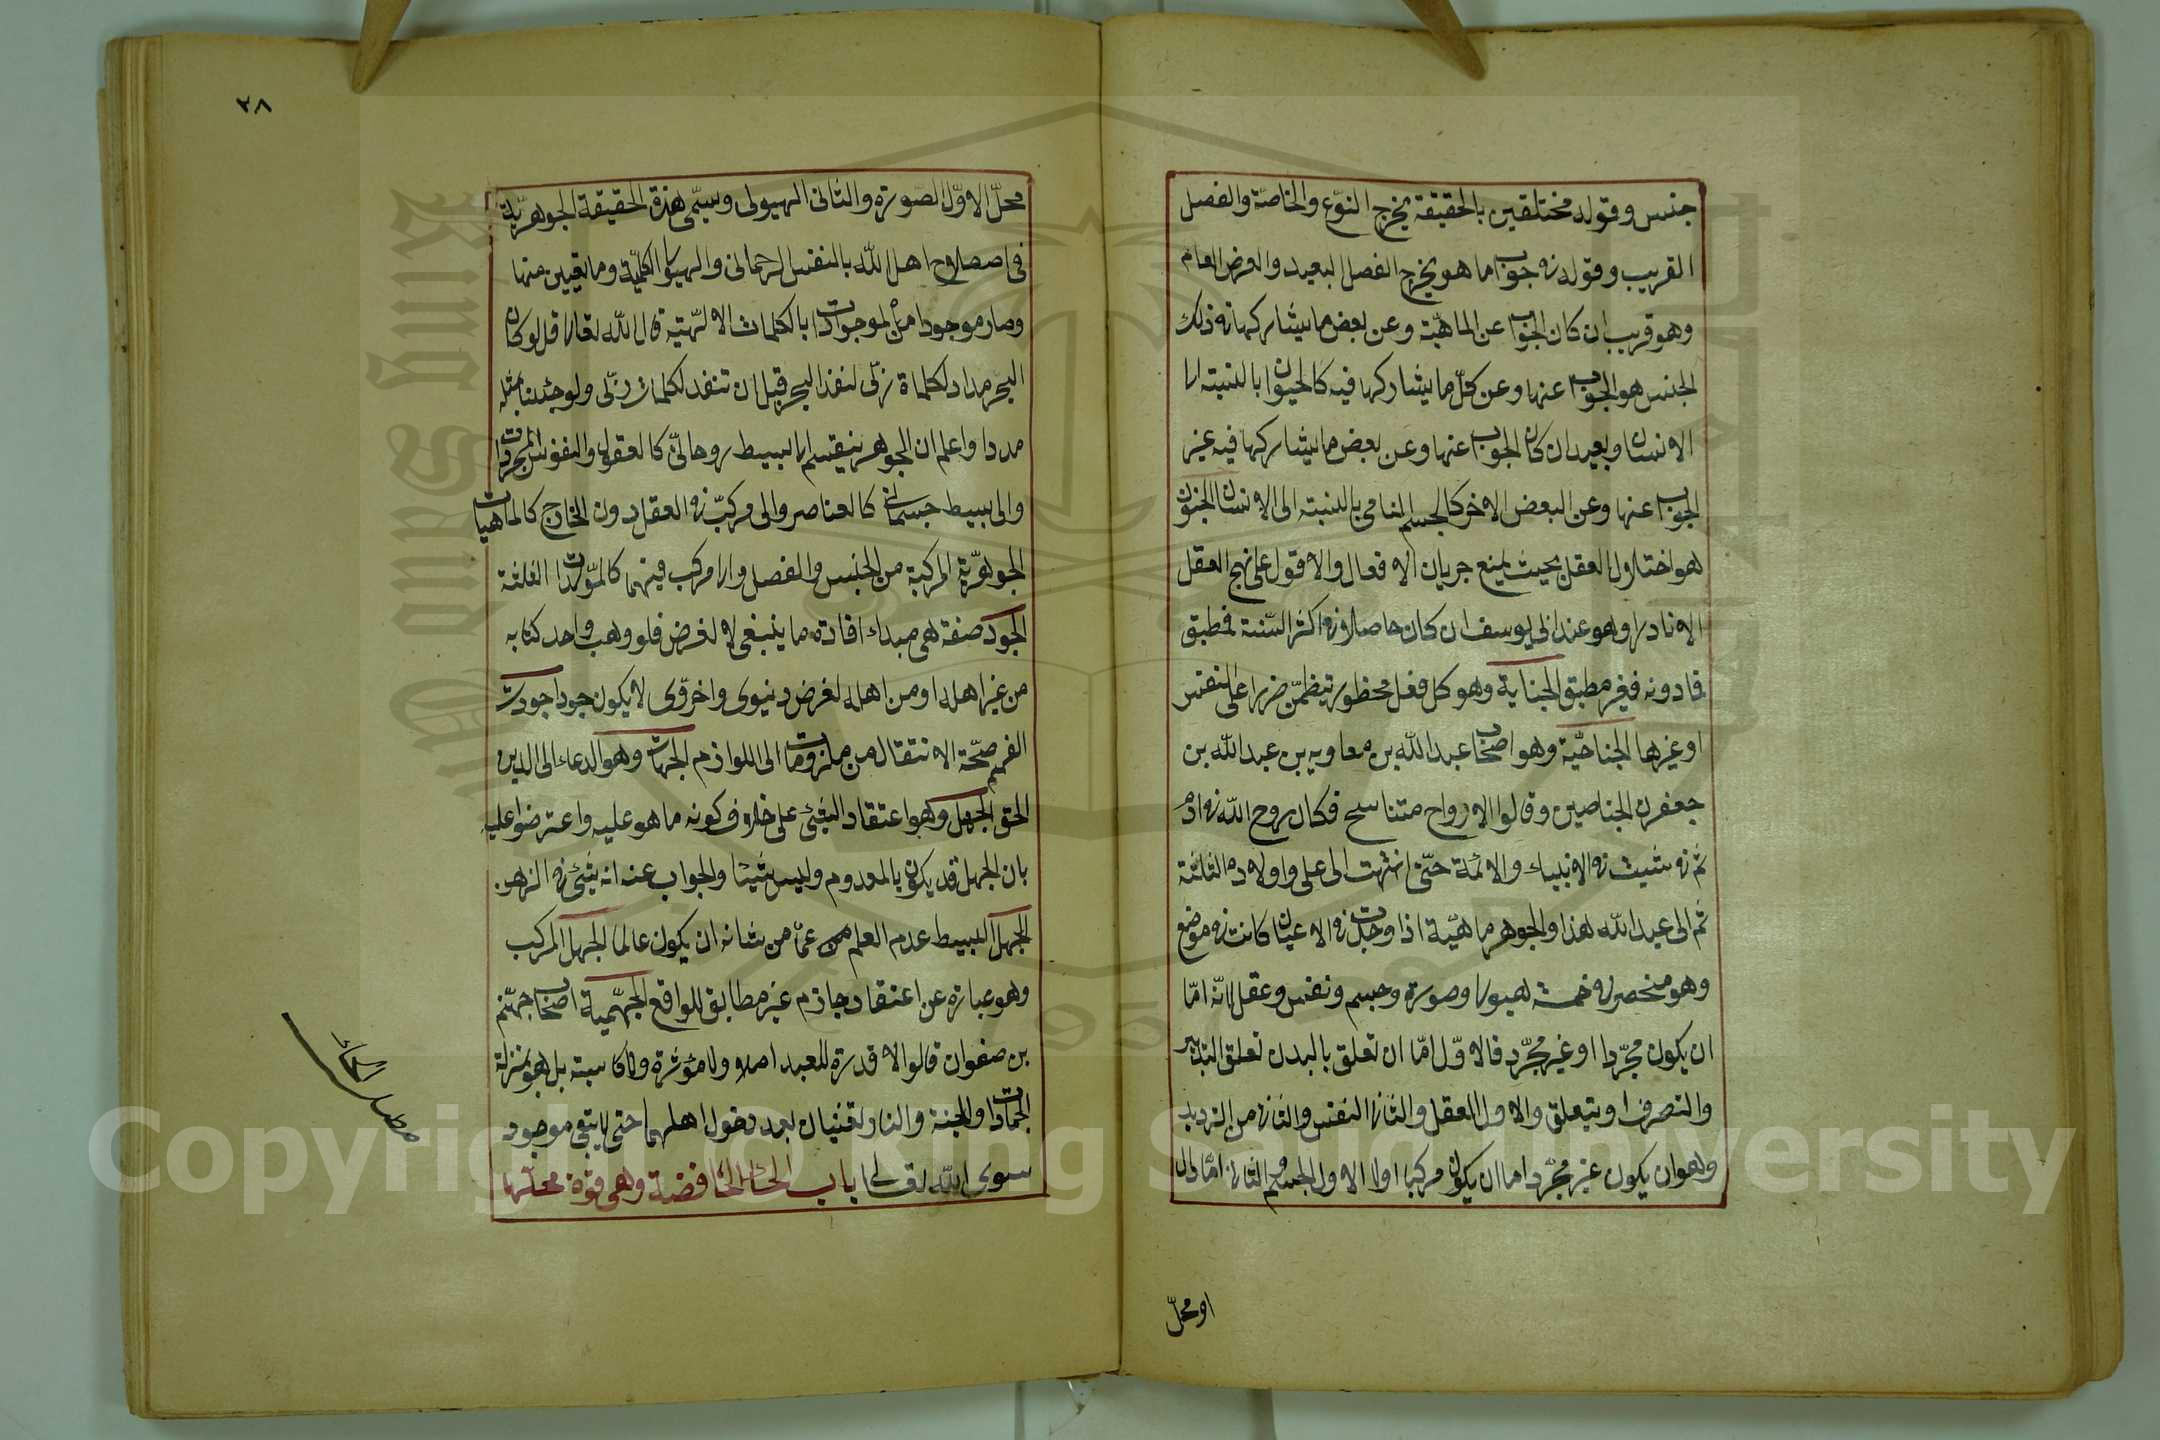 جنس وقوله مختلفين بالحقيقة يخرج النوع والخاصّة والفصل
القريب وقوله في جواب ما هو يخرج الفصل البعيد والعرض العام
وهو قريب ان كان الجواب عن الماهيّة وعن بعض ما يشاركها في ذلك
الجنس هو الجواب عنها وعن كلّ ما يشاركها فيه كالحيوان بالنسبة الى
الانسان وبعيد ان كان الجواب عنها وعن بعض ما يشاركها فيه غير
الجواب عنها وعن البعض الاخر كالجسم النامي بالنسبة الى الانسان الجنون
هو اختلال العقل بحيث يمنع جريان الافعال والاقوال على نهج العقل
الا نادرا وهو عند ابي يوسف ان كان حاصلا في اكثر السّنة فمطبق
فما دونه فغير مطبق الجناية وهو كل فعل محظور يتضمّن ضررا على النفس
او غيرها الجناحيّة وهو اصحاب عبد اللّه بن معاويه بن عبد اللّه بن
جعفر ذي الجناحين وقالوا الارواح متناسخ فكان روح اللّه في ادم
ثم في شيث ثم في الانبياء والائمة حتّى انتهت الى علي واولاده الثلثة
ثم الى عبد اللّه هذا والجوهر ماهيّة اذا وجدت في الاعيان كانت لا في موضوع
وهو منحصر في خمسة هيولى وصورة وجسم ونفس وعقل لانّه امّا
ان يكون مجرّدا او غير مجرّد فالاوّل امّا ان تعلق بالبدن تعلق التدبير
والتصرف او يتعلق والاول العقل والثاني النفس والثاني من الترديد
وهو ان يكون غير مجرّد اما ان يكون مركبا او لا الاول الجسم والثاني امّا حال
او محلّ
٢٨
محلّ الاوّل الصّورة والثاني الهيولى وسيمّى هذه الحقيقة الجوهريّة
في اصطلاح اهل اللّه بالنفس الرحماني والهيولى الكليّة وما يتعين منها
وصار موجودا من الموجودات بالكلمات الالهّية قال اللّه تعالى قل لو كان
البحر مدادا لكلمات ربّي لنفد البحر قبل ان تنفد لكلمات ربّي ولو جئنا بمثله
مددا واعلم ان الجوهر ينقسم الى بسيط روحانيّ كالعقول والنفوس المجردات
والى بسيط جسماني كالعناصر والى مركّب في العقل دون الخارج كالماهيات
الجوهريّة المركبة من الجنس والفصل والى مركب فيهما كالمولّدات الثلثة
الجود صفة هي مبداء افادة ما ينبغي لا لغرض فلو وهب واحد كتابه
من غير اهله او من اهله لغرض دنيوي واخروّي لا يكون جودا جودت
الفهم صحّة الانتقال من ملزومات الى اللوازم الجهاد وهو الدعاء الى الدين
الحق الجهل وهو اعتقاد الشيئ على خلاف كونه ما هو عليه واعترضوا عليه
بان الجهل قد يكون بالمعدوم وليس شيئا والجواب عنه انه شيئ في الذهن
الجهل البسيط عدم العلم عمّا من شانه ان يكون عالما الجهل المركب
وهو عبارة عن اعتقاد جازم غير مطابق للواقع الجهميّة اصحاب جهم
بن صفوان قالوا لا قدرة للعبد اصلا ولا مؤثرة ولا كاسبة بل هو بمنزلة
الجمادات والجنة والنار تفنيان بعد دخول اهلهما حتى لا يبقى موجود
سوى اللّه تعالى باب الحاء الحافضة وهي قوة محلّها
مطلب الحاء